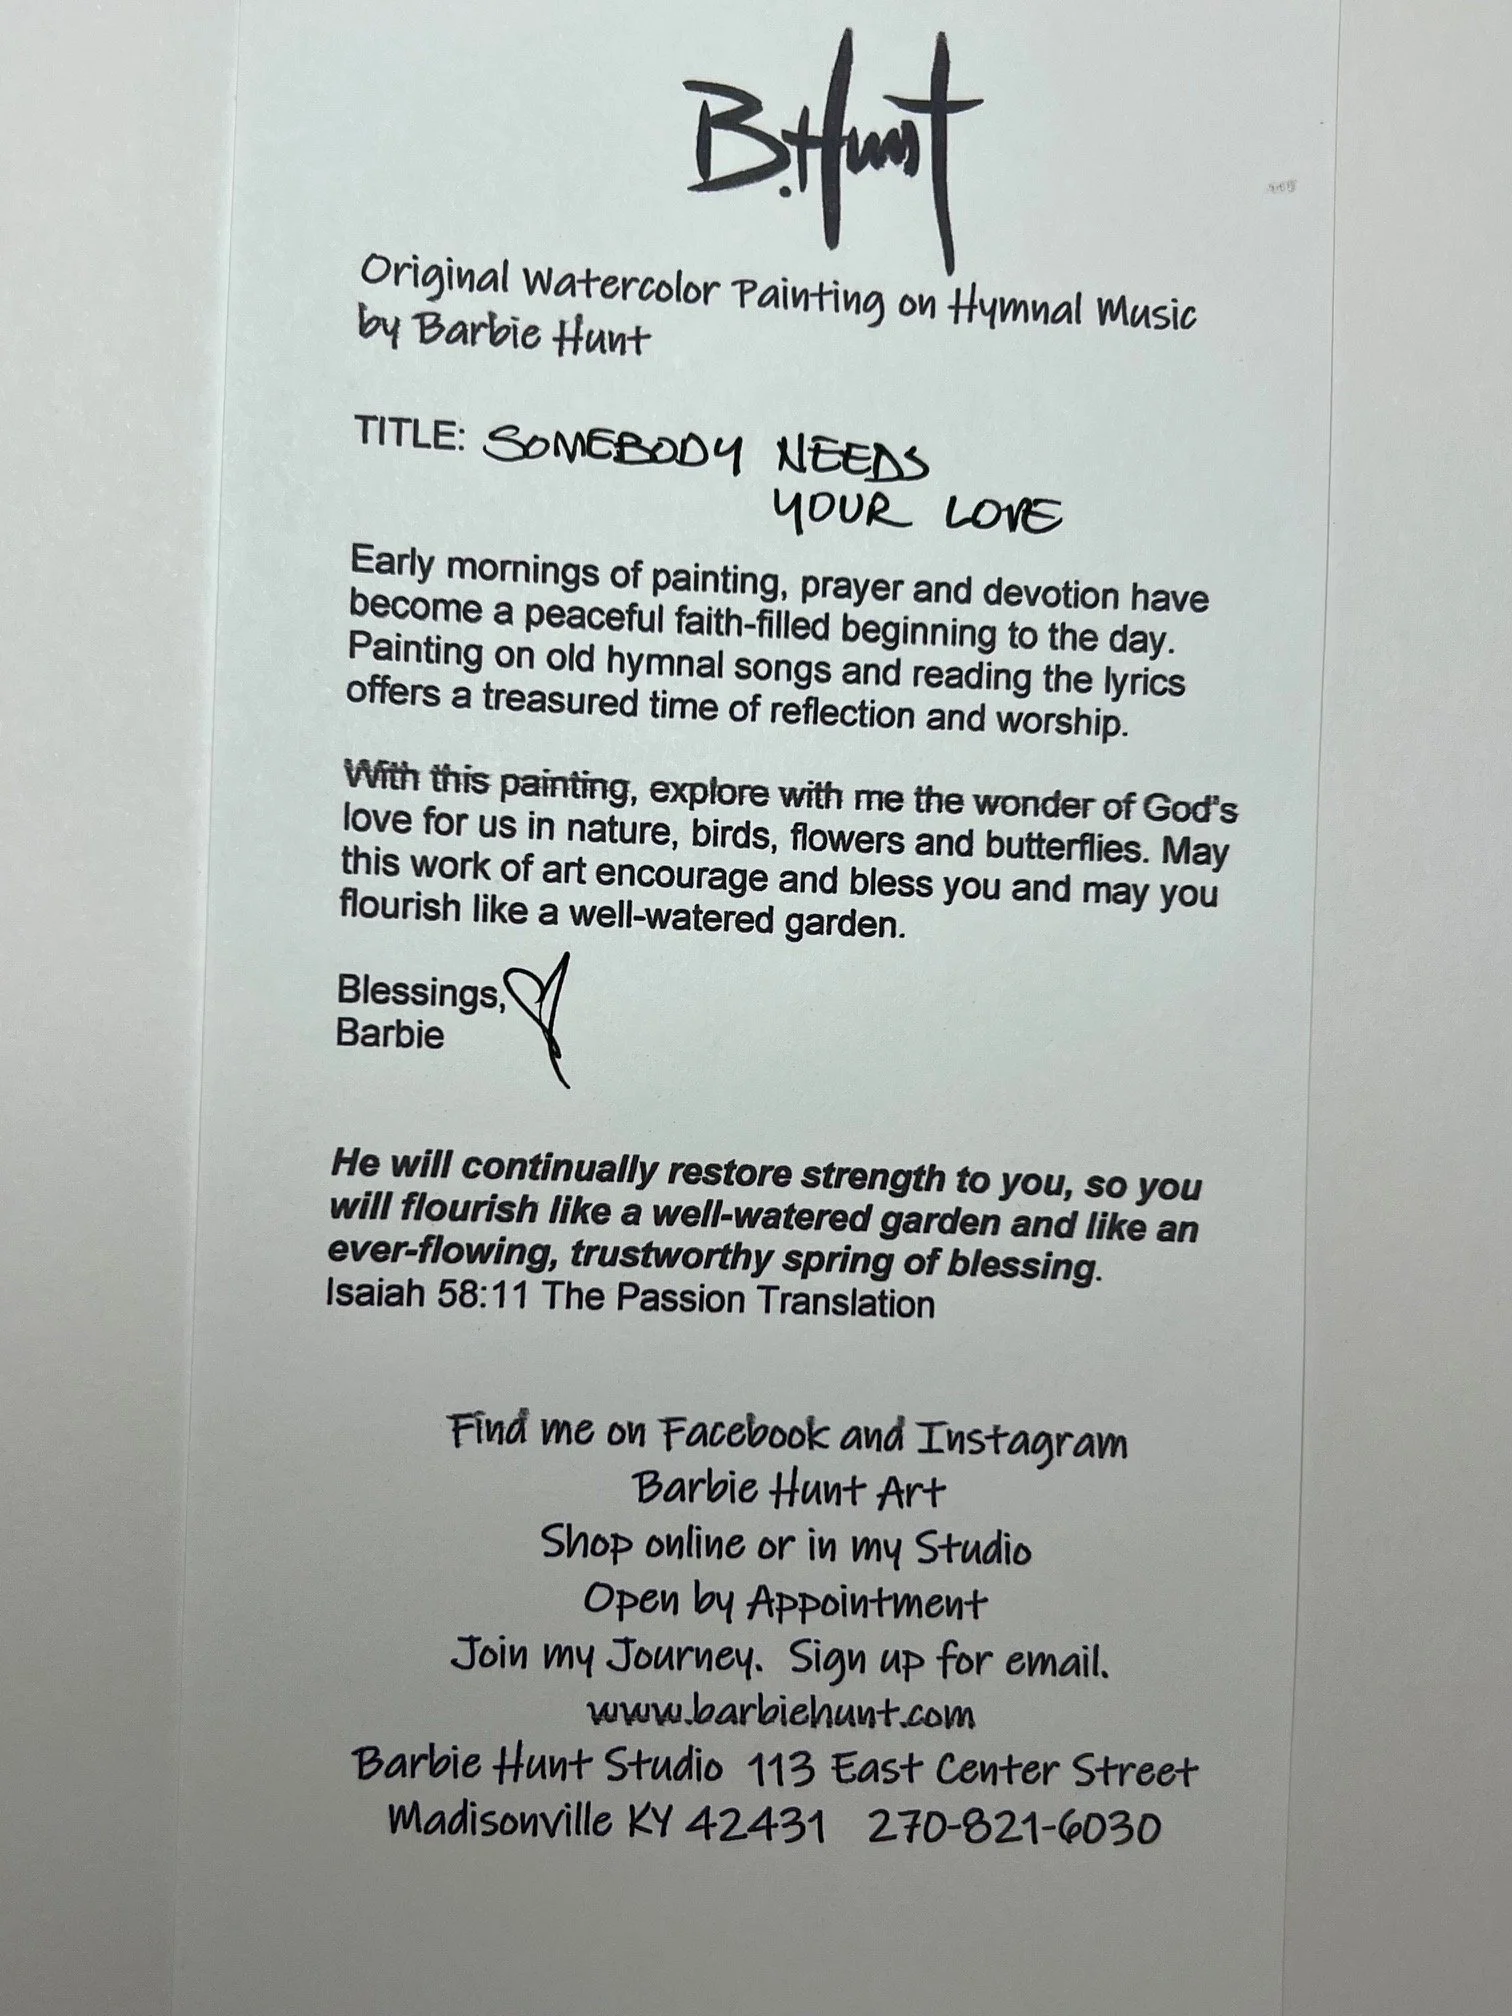 B.Hunt
Original Watercolor Painting on Hymnal Music
by Barbie Hunt
TITLE: SOMEBODY NEEDS
YOUR LOVE
Early mornings of painting, prayer and devotion have
become a peaceful faith-filled beginning to the day.
Painting on old hymnal songs and reading the lyrics
offers a treasured time of reflection and worship.
With this painting, explore with me the wonder of God's
love for us in nature, birds, flowers and butterflies. May
this work of art encourage and bless you and may you
flourish like a well-watered garden.
Blessings,
Barbie
He will continually restore strength to you, so you
will flourish like a well-watered garden and like an
ever-flowing, trustworthy spring of blessing.
Isaiah 58:11 The Passion Translation
Find me on Facebook and Instagram
Barbie Hunt Art
Shop online or in my Studio
Open by Appointment
Join my Journey. Sign up for email.
www.barbiehunt.com
Barbie Hunt Studio 113 East Center Street
Madisonville KY 42431 270-821-6030